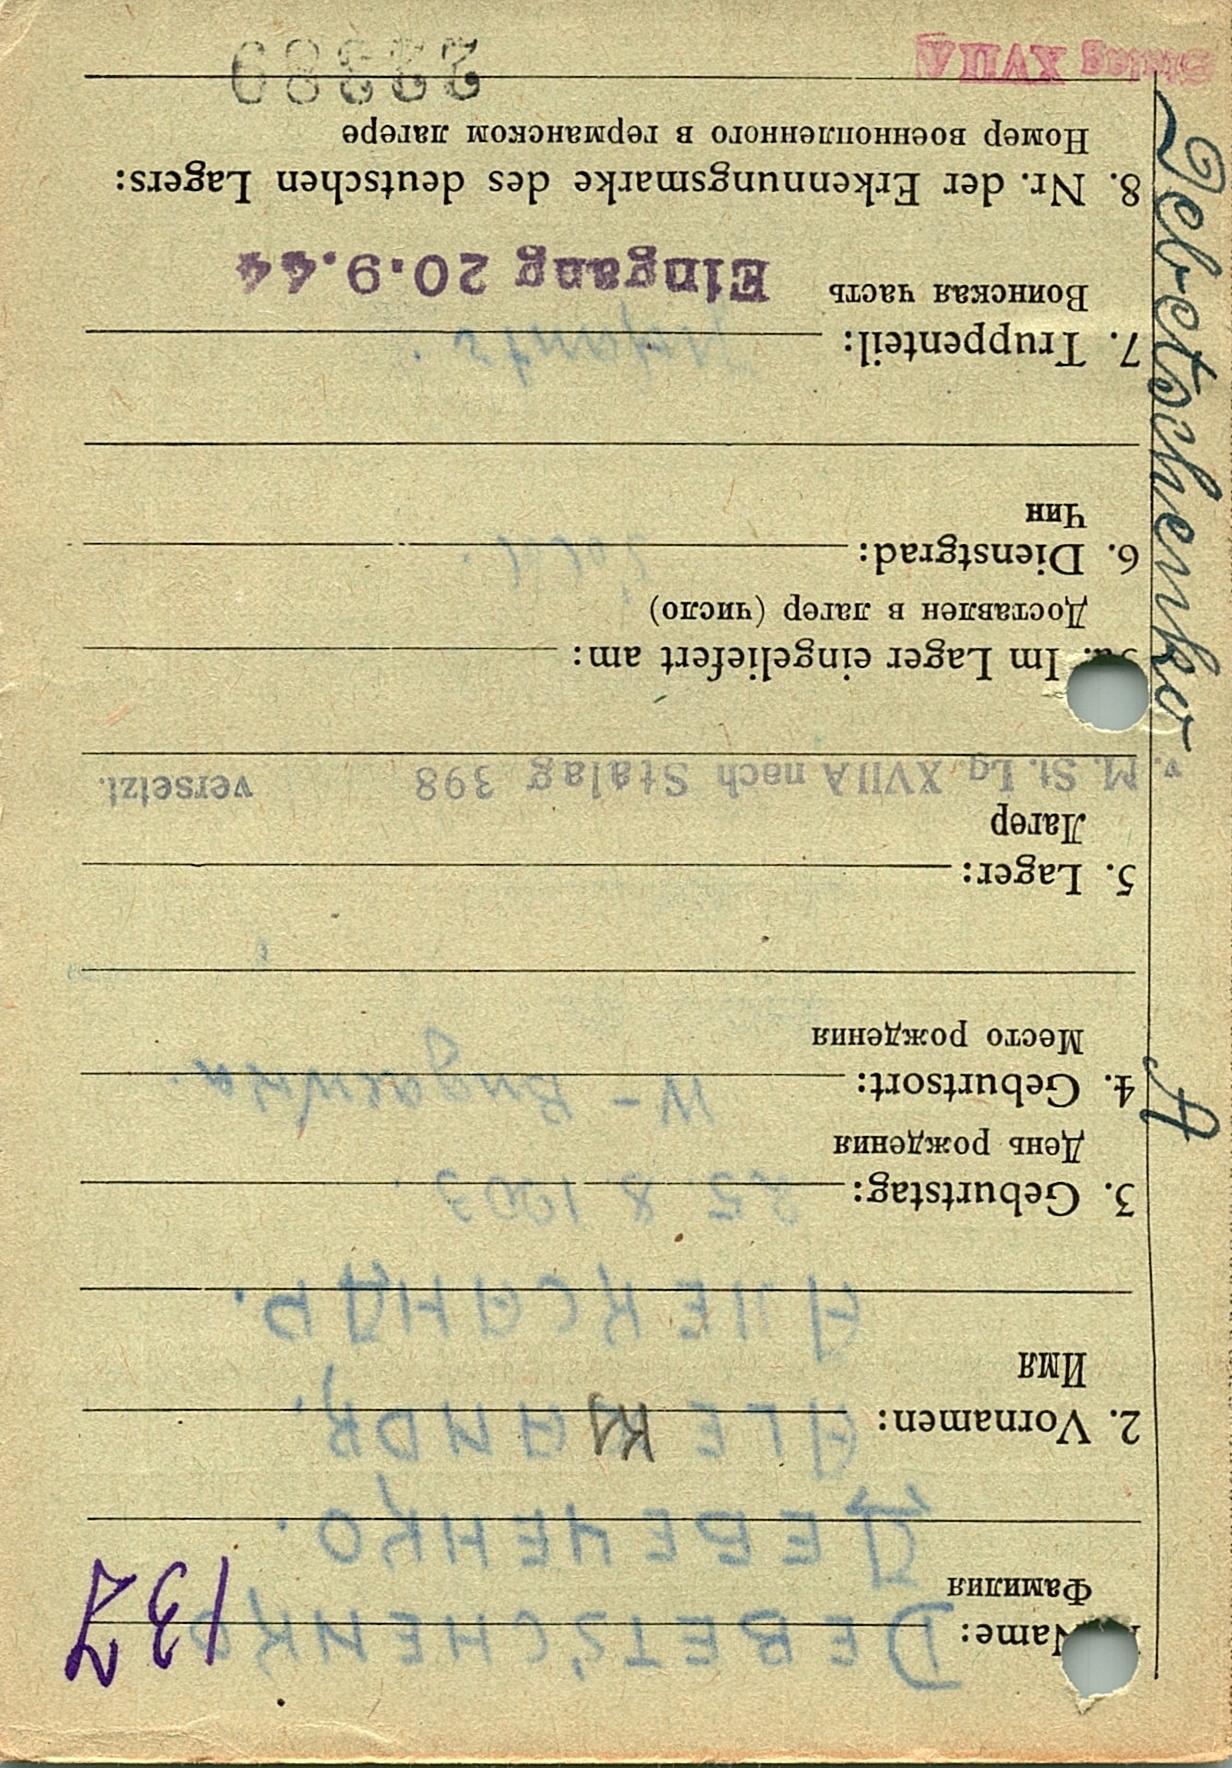 137
Name: DEBETSCHENKO
Фамилия
ДЕБЕЧЕНКО.
2. Vornamen: ALEKSANDR.
Имя
АЛЕКСАНДР.
3. Geburtstag: 25. 8. 1903.
День рождения
4. Geburtsort: W -
Место рождения
5. Lager:
Лагер
v. M. St. Lg. XVII A nach Stalag 398 versetzt.
Im Lager eingeliefert am:
Доставлен в лагер (число)
6. Dienstgrad: Sold.
Чин
7. Truppenteil:
Воинская часть
Eingang 20.9.44
8. Nr. der Erkennungsmarke des deutschen Lagers:
Номер военнопленного в германском лагере
22389
Stalag XVII A
Debetschenko A